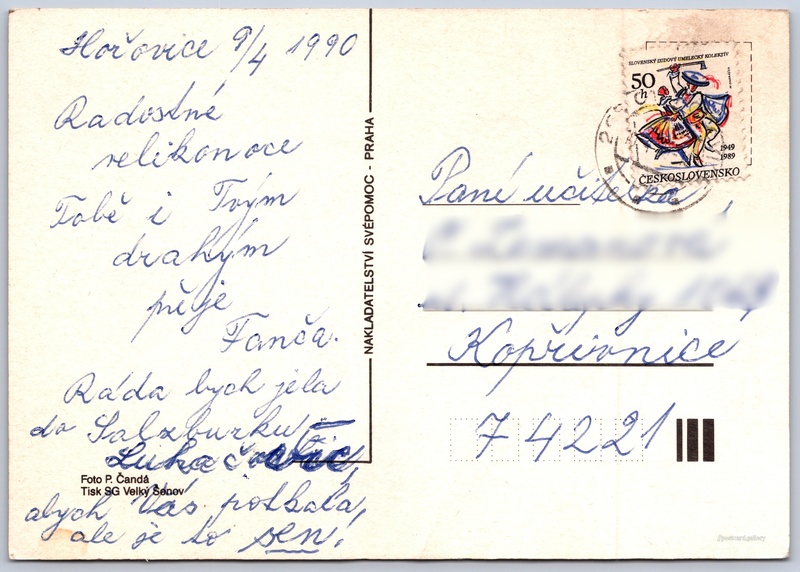 Hořovice 9/4 1990
Radostné
velikonoce
Tobě i Tvým
drahým
přeje
Fanča.
Ráda bych jela
do Salzburku,
Luhačovic,
abych Vás potkala,
ale je to sen!
Foto P. Čandá
Tisk SG Velký Šenov
NAKLADATELSTVÍ SVÉPOMOC - PRAHA
SLOVENSKÝ ĽUDOVÝ UMELECKÝ KOLEKTÍV
50
h
1949
1989
ČESKOSLOVENSKO
Paní učitelka
Kopřivnice
74221